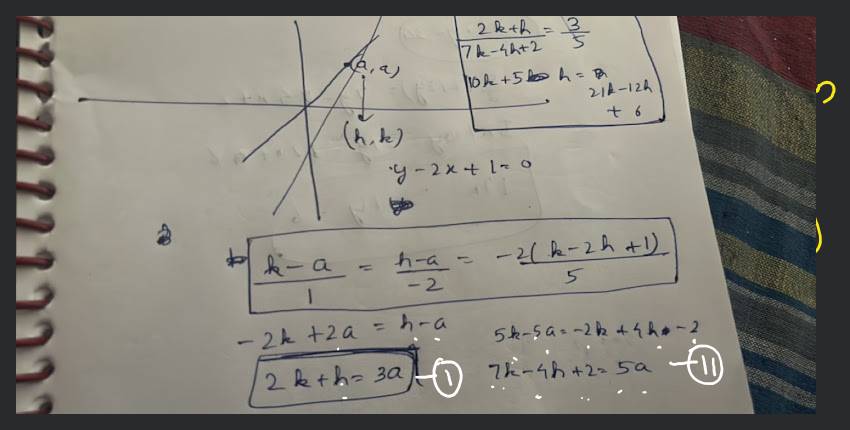 2k+h / 7k-4h+2 = 3/5
10k+5 h =
21k-12h
+ 6
(a, a)
(h, k)
y - 2x + 1 = 0
k-a / 1 = h-a / -2 = -2(k-2h+1) / 5
-2k+2a = h-a
5k-5a = -2k+4h-2
2k+h = 3a - 1
7k-4h+2 = 5a - 11